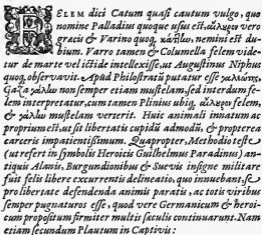 FELEM dici Catum quasi cautum vulgo, quo
nomine Palladius quoque usus est, αἴλυρον vero
græcis & Varino quoq. γαλῆν, nemini est du-
bium. Varro tamen & Columella felem vide-
tur de marte vel ictide intellexisse, ut Augustinus Niphus
quoq. observavit. Apud Philostratū putatur esse γαλιώτης,
Gaza γαλῆν non semper etiam mustelam, sed interdum fe-
lem interpretatur, cum tamen Plinius ubiq. αἴλυρον felem,
& γαλῆν mustelam verterit. Huic animali innatum ac
proprium est, ut sit libertatis cupidū admodū, & propterea
carceris impatientissimum. Quapropter, Methodio teste
(ut refert in symbolis Heroicis Guilhelmus Paradinus) an-
tiquis Alanis, Burgundionibus & Suevis insigne militare
fuit felis libere excurrentis delineatio, quo innuebant, se
pro libertate defendenda animis paratis, ac totis viribus
semper pugnaturos esse, quod vere Germanicum & heroi-
cum propositum firmiter multis sæculis continuarunt. Nam
etiam secundum Plautum in Captivis: